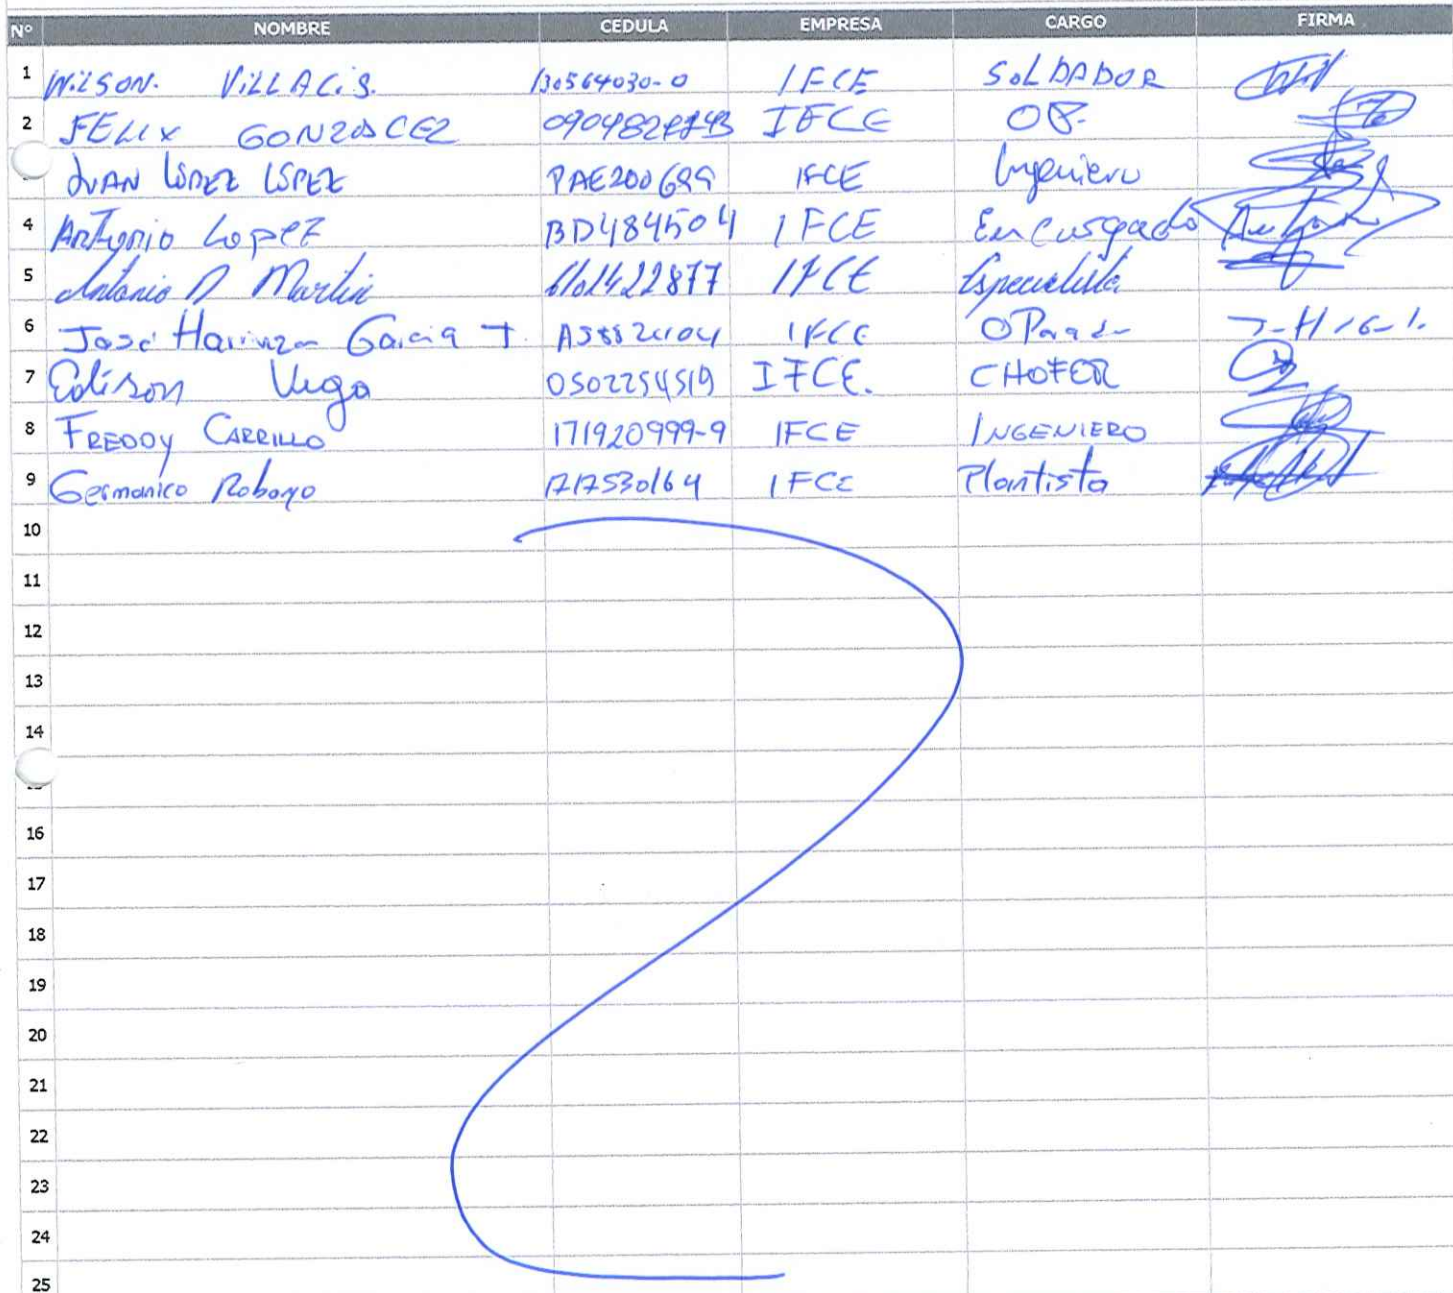 Nº NOMBRE CEDULA EMPRESA CARGO FIRMA
1 WILSON. VILLACIS. 130564030-0 IFCE SOLDADOR
2 FELIX GONZALEZ IFCE OP.
JUAN LÓPEZ LÓPEZ PAE200699 IFCE Ingeniero
4 Antonio Lopez BD484504 IFCE Encargado
5 Antonio Martin IFCE Especialista
6 José Garcia T. IFCE
7 Edison Vega 0502254519 IFCE. CHOFER
8 FREDDY CARRILLO 171920999-9 IFCE INGENIERO
9 Germanico Robayo 1717530164 IFCE Plantista
10
11
12
13
14
16
17
18
19
20
21
22
23
24
25